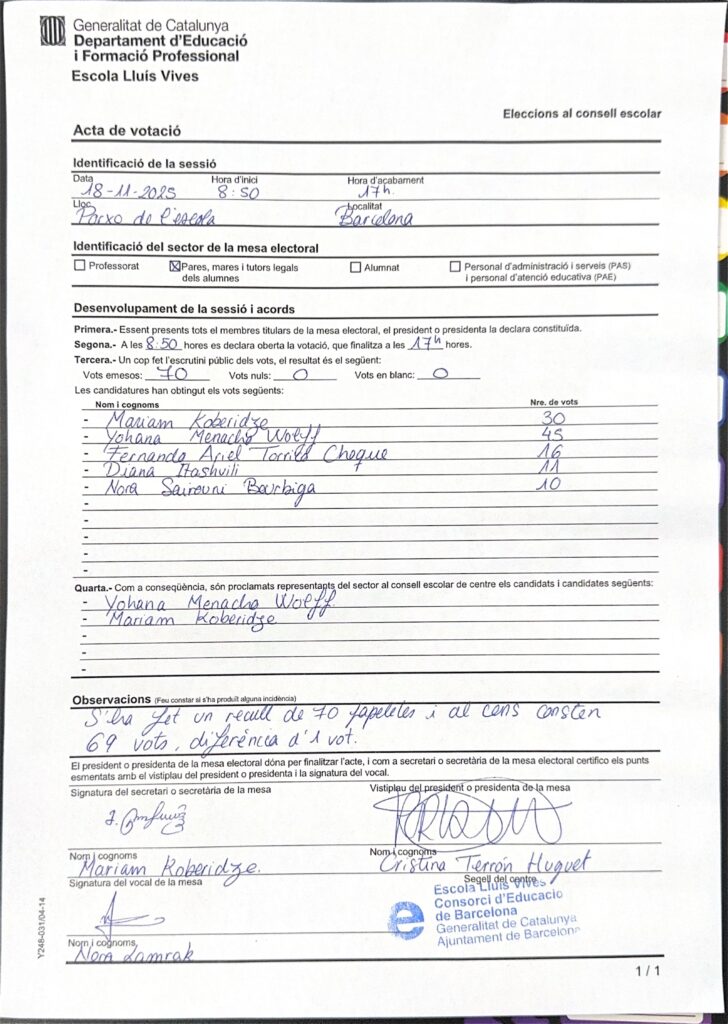 Generalitat de Catalunya
Departament d'Educació
i Formació Professional
Escola Lluís Vives
Eleccions al consell escolar
Acta de votació
Identificació de la sessió
Data Hora d'inici Hora d'acabament
18-11-2025 8:50 17h.
Lloc Localitat
Porxo de l'escola Barcelona
Identificació del sector de la mesa electoral
Professorat Pares, mares i tutors legals dels alumnes Alumnat Personal d'administració i serveis (PAS) i personal d'atenció educativa (PAE)
Desenvolupament de la sessió i acords
Primera.- Essent presents tots el membres titulars de la mesa electoral, el president o presidenta la declara constituïda.
Segona.- A les 8:50 hores es declara oberta la votació, que finalitza a les 17h hores.
Tercera.- Un cop fet l'escrutini públic dels vots, el resultat és el següent:
Vots emesos: 70 Vots nuls: 0 Vots en blanc: 0
Les candidatures han obtingut els vots següents:
Nom i cognoms Nre. de vots
- Mariam Koberidze 30
- Yohana Menacho Wolff 45
- Fernando Ariel Cheque 16
- Diana 11
- Nora 10
-
-
-
-
-
Quarta.- Com a conseqüència, són proclamats representants del sector al consell escolar de centre els candidats i candidates següents:
- Yohana Menacho Wolff
- Mariam Koberidze
-
-
-
Observacions (Feu constar si s'ha produït alguna incidència)
S'ha fet un recull de 70 papeletes i al cens consten
69 vots, diferència d'1 vot.
El president o presidenta de la mesa electoral dóna per finalitzar l'acte, i com a secretari o secretària de la mesa electoral certifico els punts
esmentats amb el vistiplau del president o presidenta i la signatura del vocal.
Signatura del secretari o secretària de la mesa Vistiplau del president o presidenta de la mesa
Nom i cognoms Nom i cognoms
Mariam Koberidze. Cristina Terrón Huguet
Signatura del vocal de la mesa Segell del centre
Escola Lluís Vives
Consorci d'Educació
de Barcelona
Generalitat de Catalunya
Ajuntament de Barcelona
Nom i cognoms
Nora Lamrak
Y246-031/04-14
1 / 1